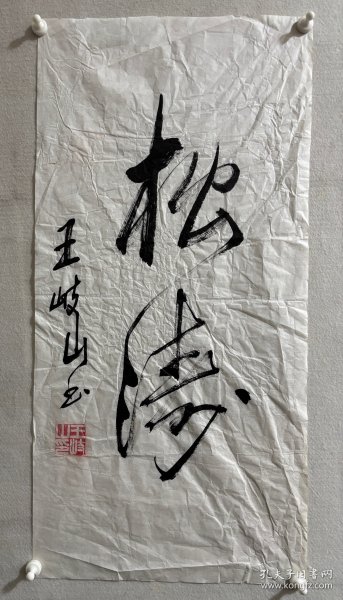 松涛
王岐山书
王岐山印
孔夫子旧书网
www.kongfz.com